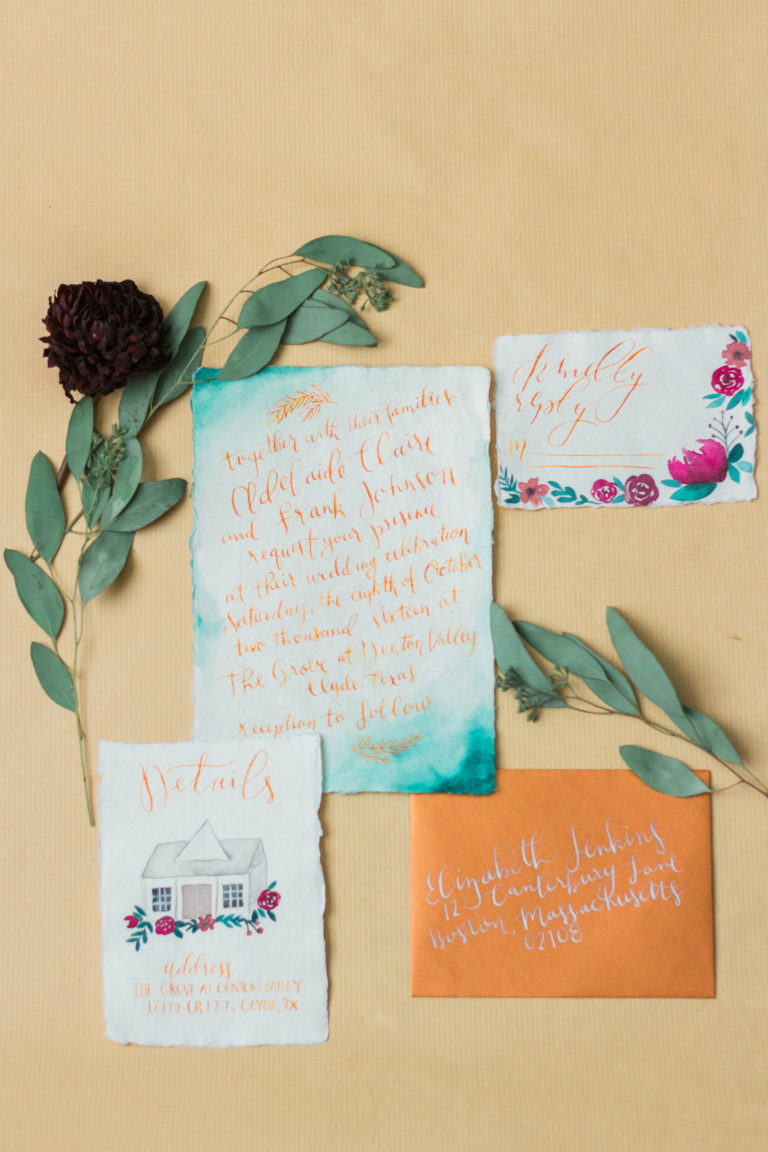 together with their families
Adelaide Claire
and Frank Johnson
request your presence
at their wedding celebration
Saturday, the eighth of October
two thousand sixteen at
The Grove at Denton Valley
Clyde, Texas
reception to follow
Kindly
reply
M
Details
address
THE GROVE AT DENTON VALLEY
12179 CR 177, CLYDE, TX
Elizabeth Jenkins
12 Canterbury Lane
Boston, Massachusetts
02108